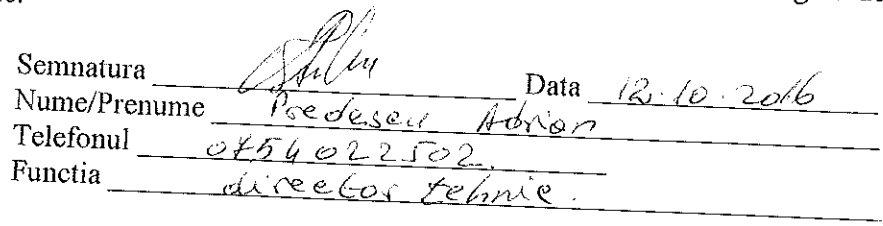 Semnatura Data 12.10.2016
Nume/Prenume Predescu Adrian
Telefonul 0754022502.
Functia director tehnic.